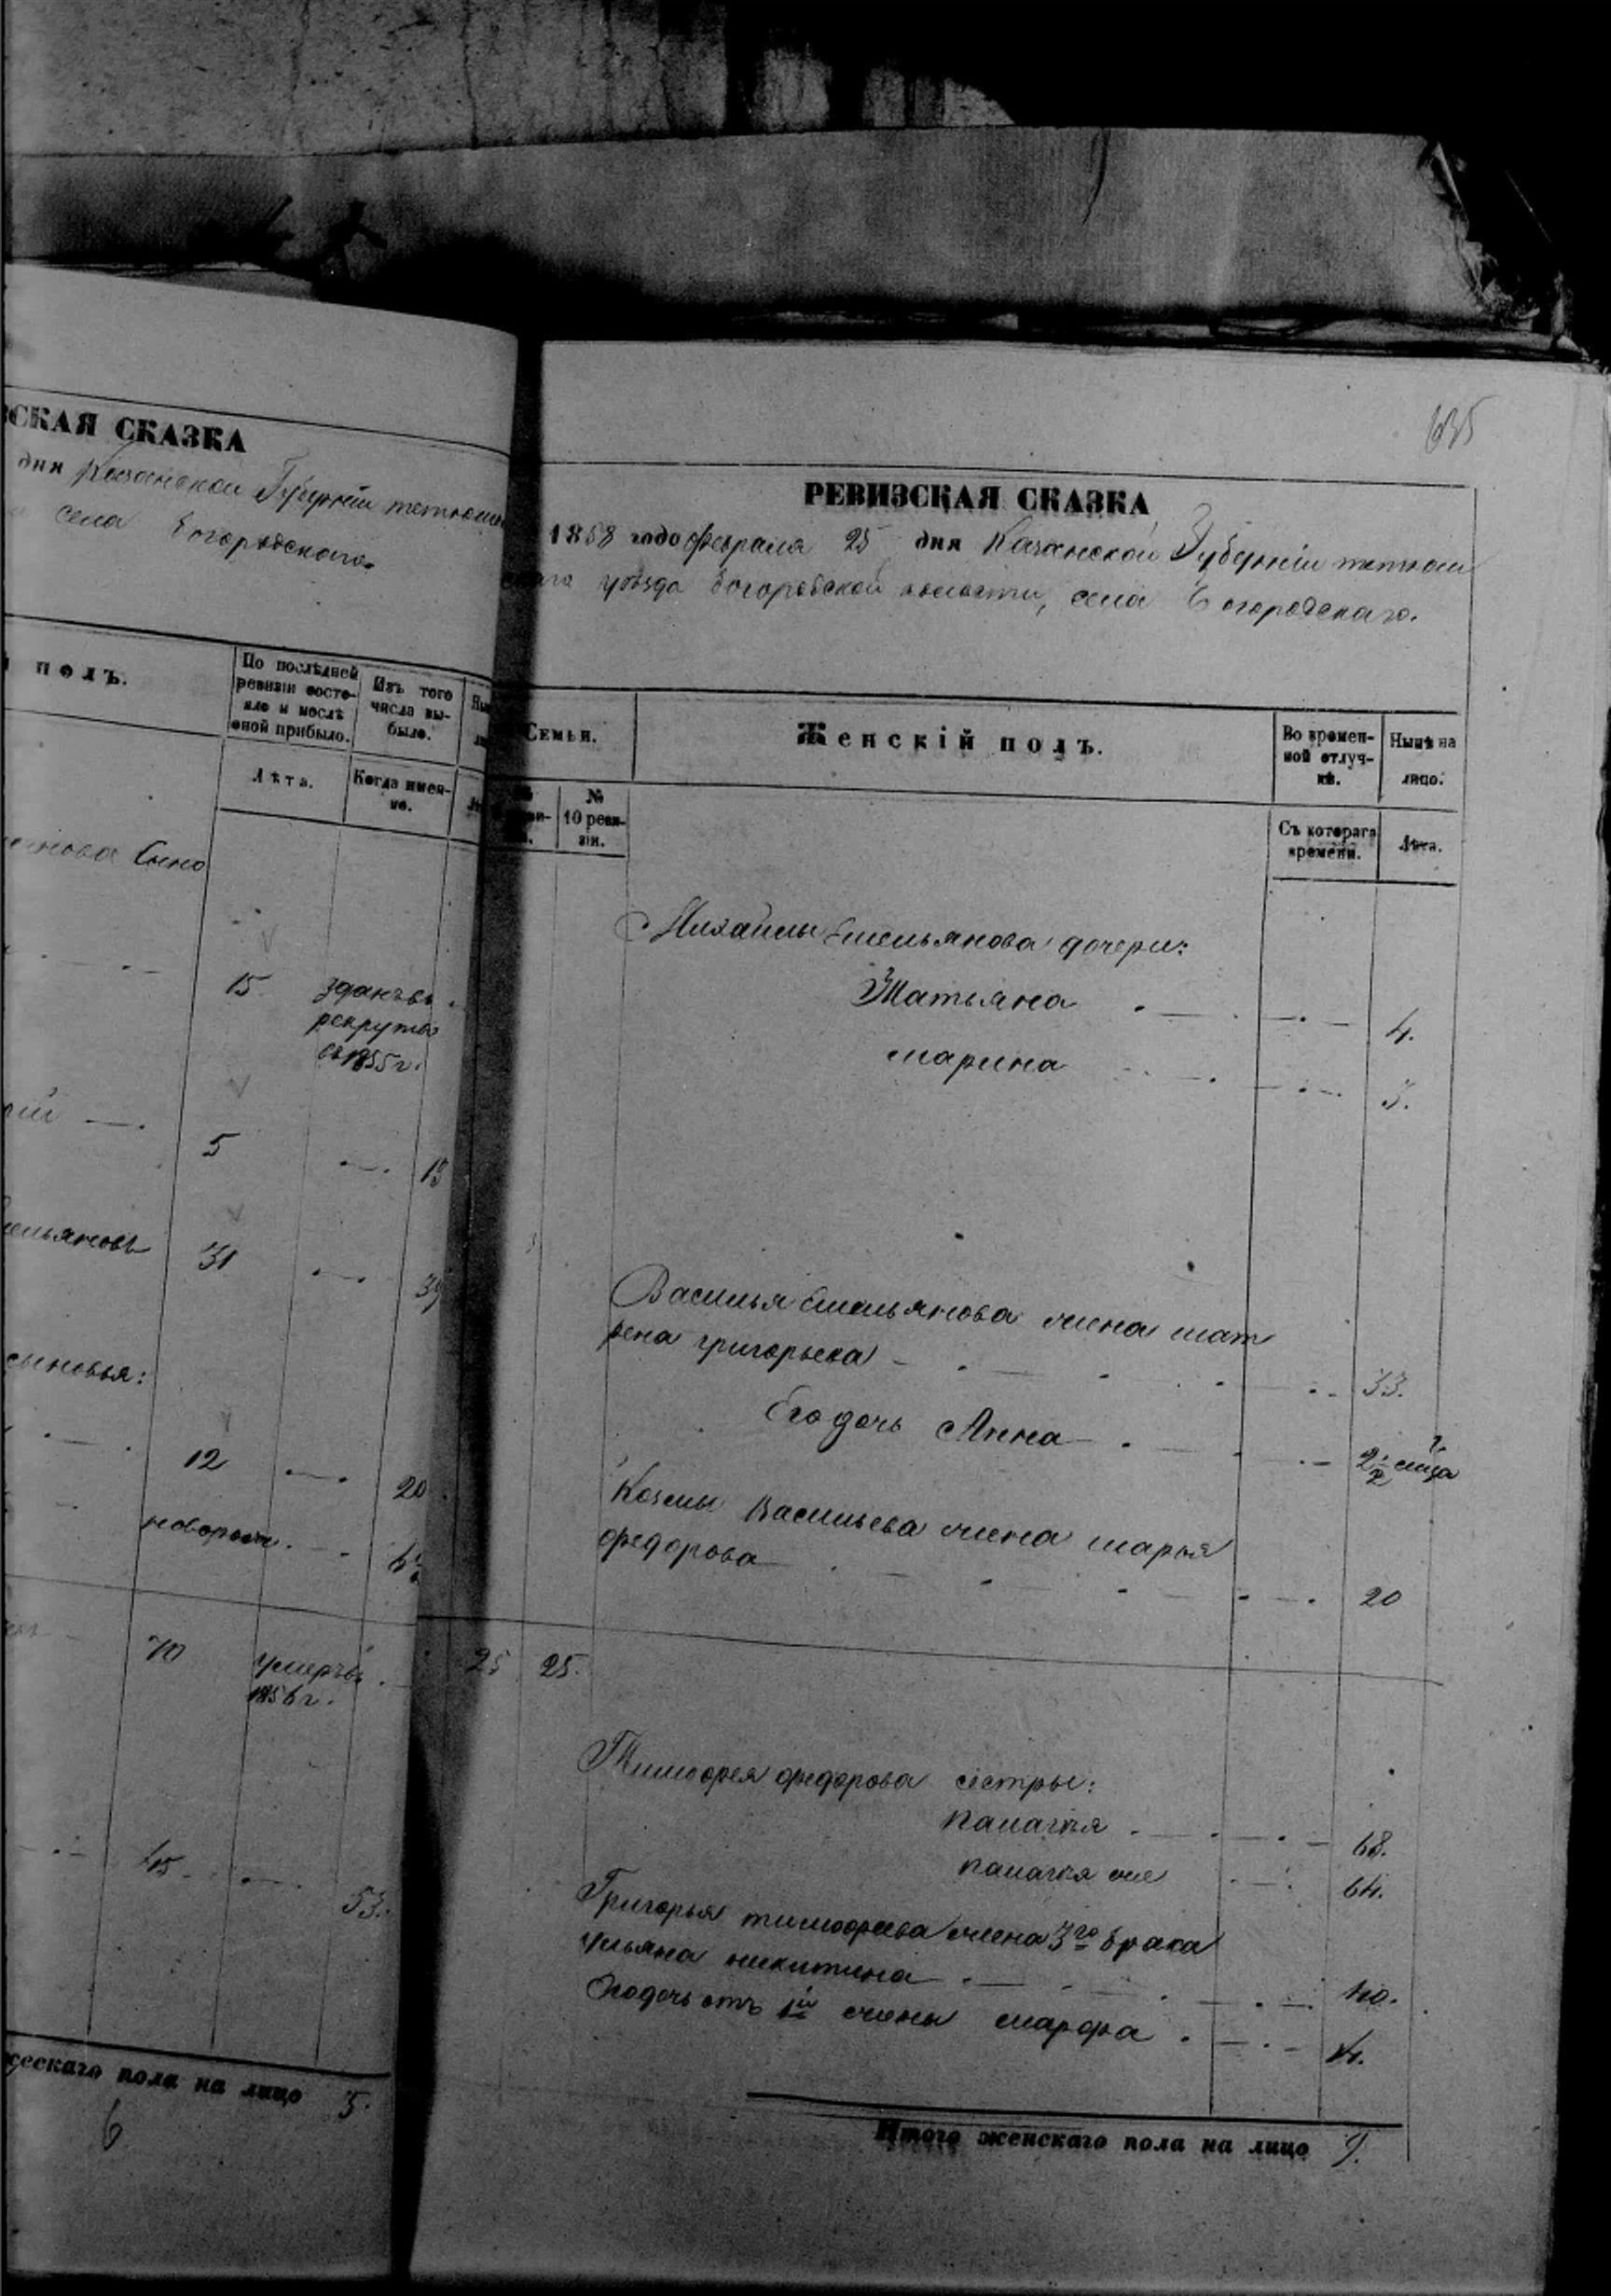 СКАЯ СКАЗКА
дня Казанской Губерніи тетюш
села Богородскаго.
полъ.
По послѣдней ревизіи состояло и послѣ оной прибыло.
Изъ того числа выбыло.
Лѣта.
Когда именно.
Сыно
15 зданъ въ
рекруты
въ 1855 г.
5 13
ельяновъ 31 39
сыновья:
12 20
новорожд.
70 умеръ въ
1856 г.
45 53.
ескаго пола на лицо 5.
6
635
РЕВИЗСКАЯ СКАЗКА
1858 года Февраля 25 дня Казанской Губерніи тетюш
скаго уѣзда Богородской волости, села Богородскаго.
Семьи.
Женскій полъ.
Во временной отлучкѣ.
Нынѣ на лицо.
№ 10 ревизіи.
Съ котораго времени.
Лѣта.
Михаилы Емельянова дочери:
Татьяна 4.
марина 3.
Василья Емельянова жена мат
рена григорьева 33.
Его дочь Анна 2 1/2 мца
Козмы Васильева жена марья
федорова 20
25 25.
Тимофея федорова сестры:
палагѣя 68.
палагѣя же 64.
Григорья тимофеева жена 3го брака
ульяна никитина 40.
Его дочь отъ 1й жены марфа 14.
Итого женскаго пола на лицо 9.